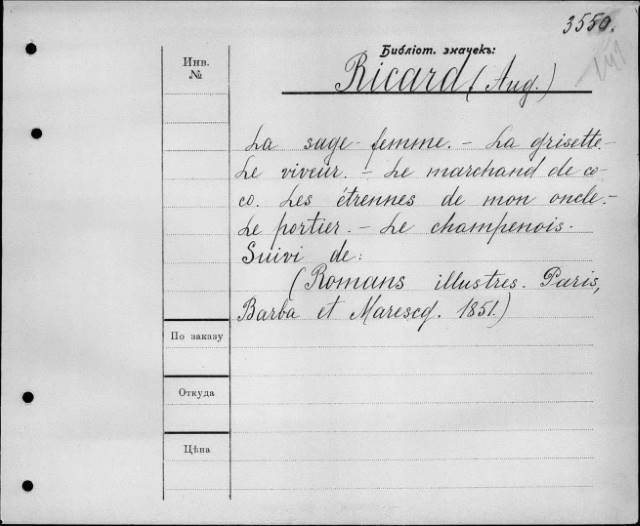 3550.
141
Библіот. значекъ:
Инв.
№
Ricard (Aug.)
La sage-femme. - La grisette.-
Le viveur. - Le marchand de co-
co. Les étrennes de mon oncle.-
Le portier. - Le champenois.
Suivi de:
(Romans illustres. Paris,
Barba et Marescq. 1851.)
По заказу
Откуда
Цѣна